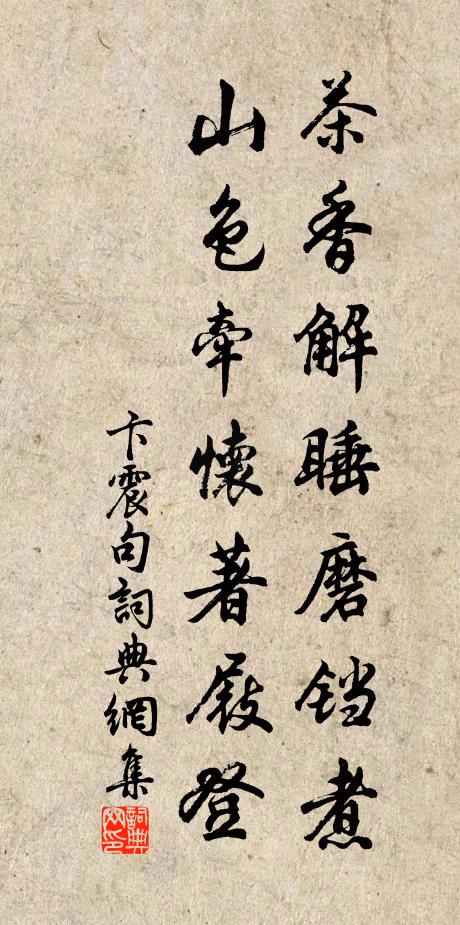 茶香解睡磨铛煮
山色牵懷著屐登
卞震句詞典網集
詞典网印